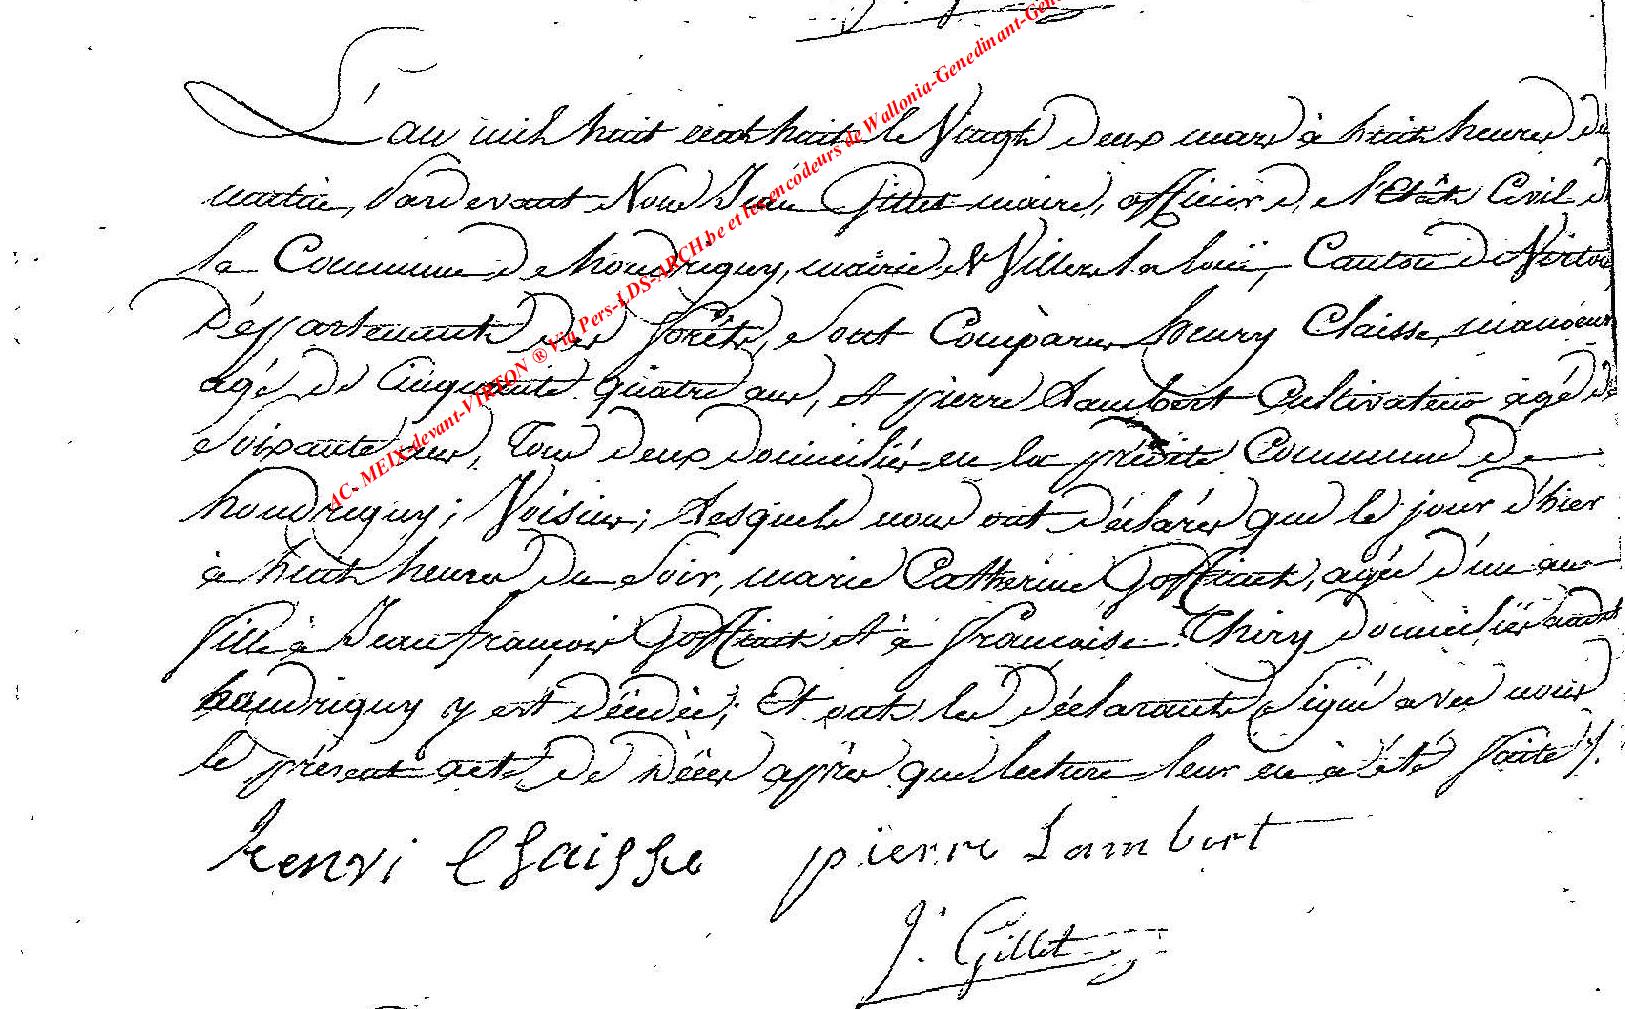 L'an mil huit cent huit le Vingt deux mars à huit heures du
matin, Pardevant Nous Jean Gillet maire, officier de l'Etât Civil de
la Commune de houdrigny, mairie de Villers la loüe, Canton de Virton,
Département des forêts, Sont Comparus henry Claisse, manoeuvre
agé de Cinquante quatre ans, et pierre Lambert Cultivateur agé de
Soixante ans, Tous deux domiciliés en la prédite Commune de
houdrigny; Voisins; Lesquels nous ont déclarés que le jour d'hier
à huit heures du Soir, marie Catherine Goffinet, agée d'un an
fille à Jean françois Goffinet et à francoise Thiry domiciliés audit
houdrigny y est décédée; Et ont les déclarants Signé avec nous
le présent acte de décès après que lecture leur en à été faite ./.
henri Claisse pierre Lambert
J. Gillet
AC- MEIX-devant-VIRTON ® Via Pers-LDS-ARCH.be et les encodeurs de Wallonia-Genedinant-Gen